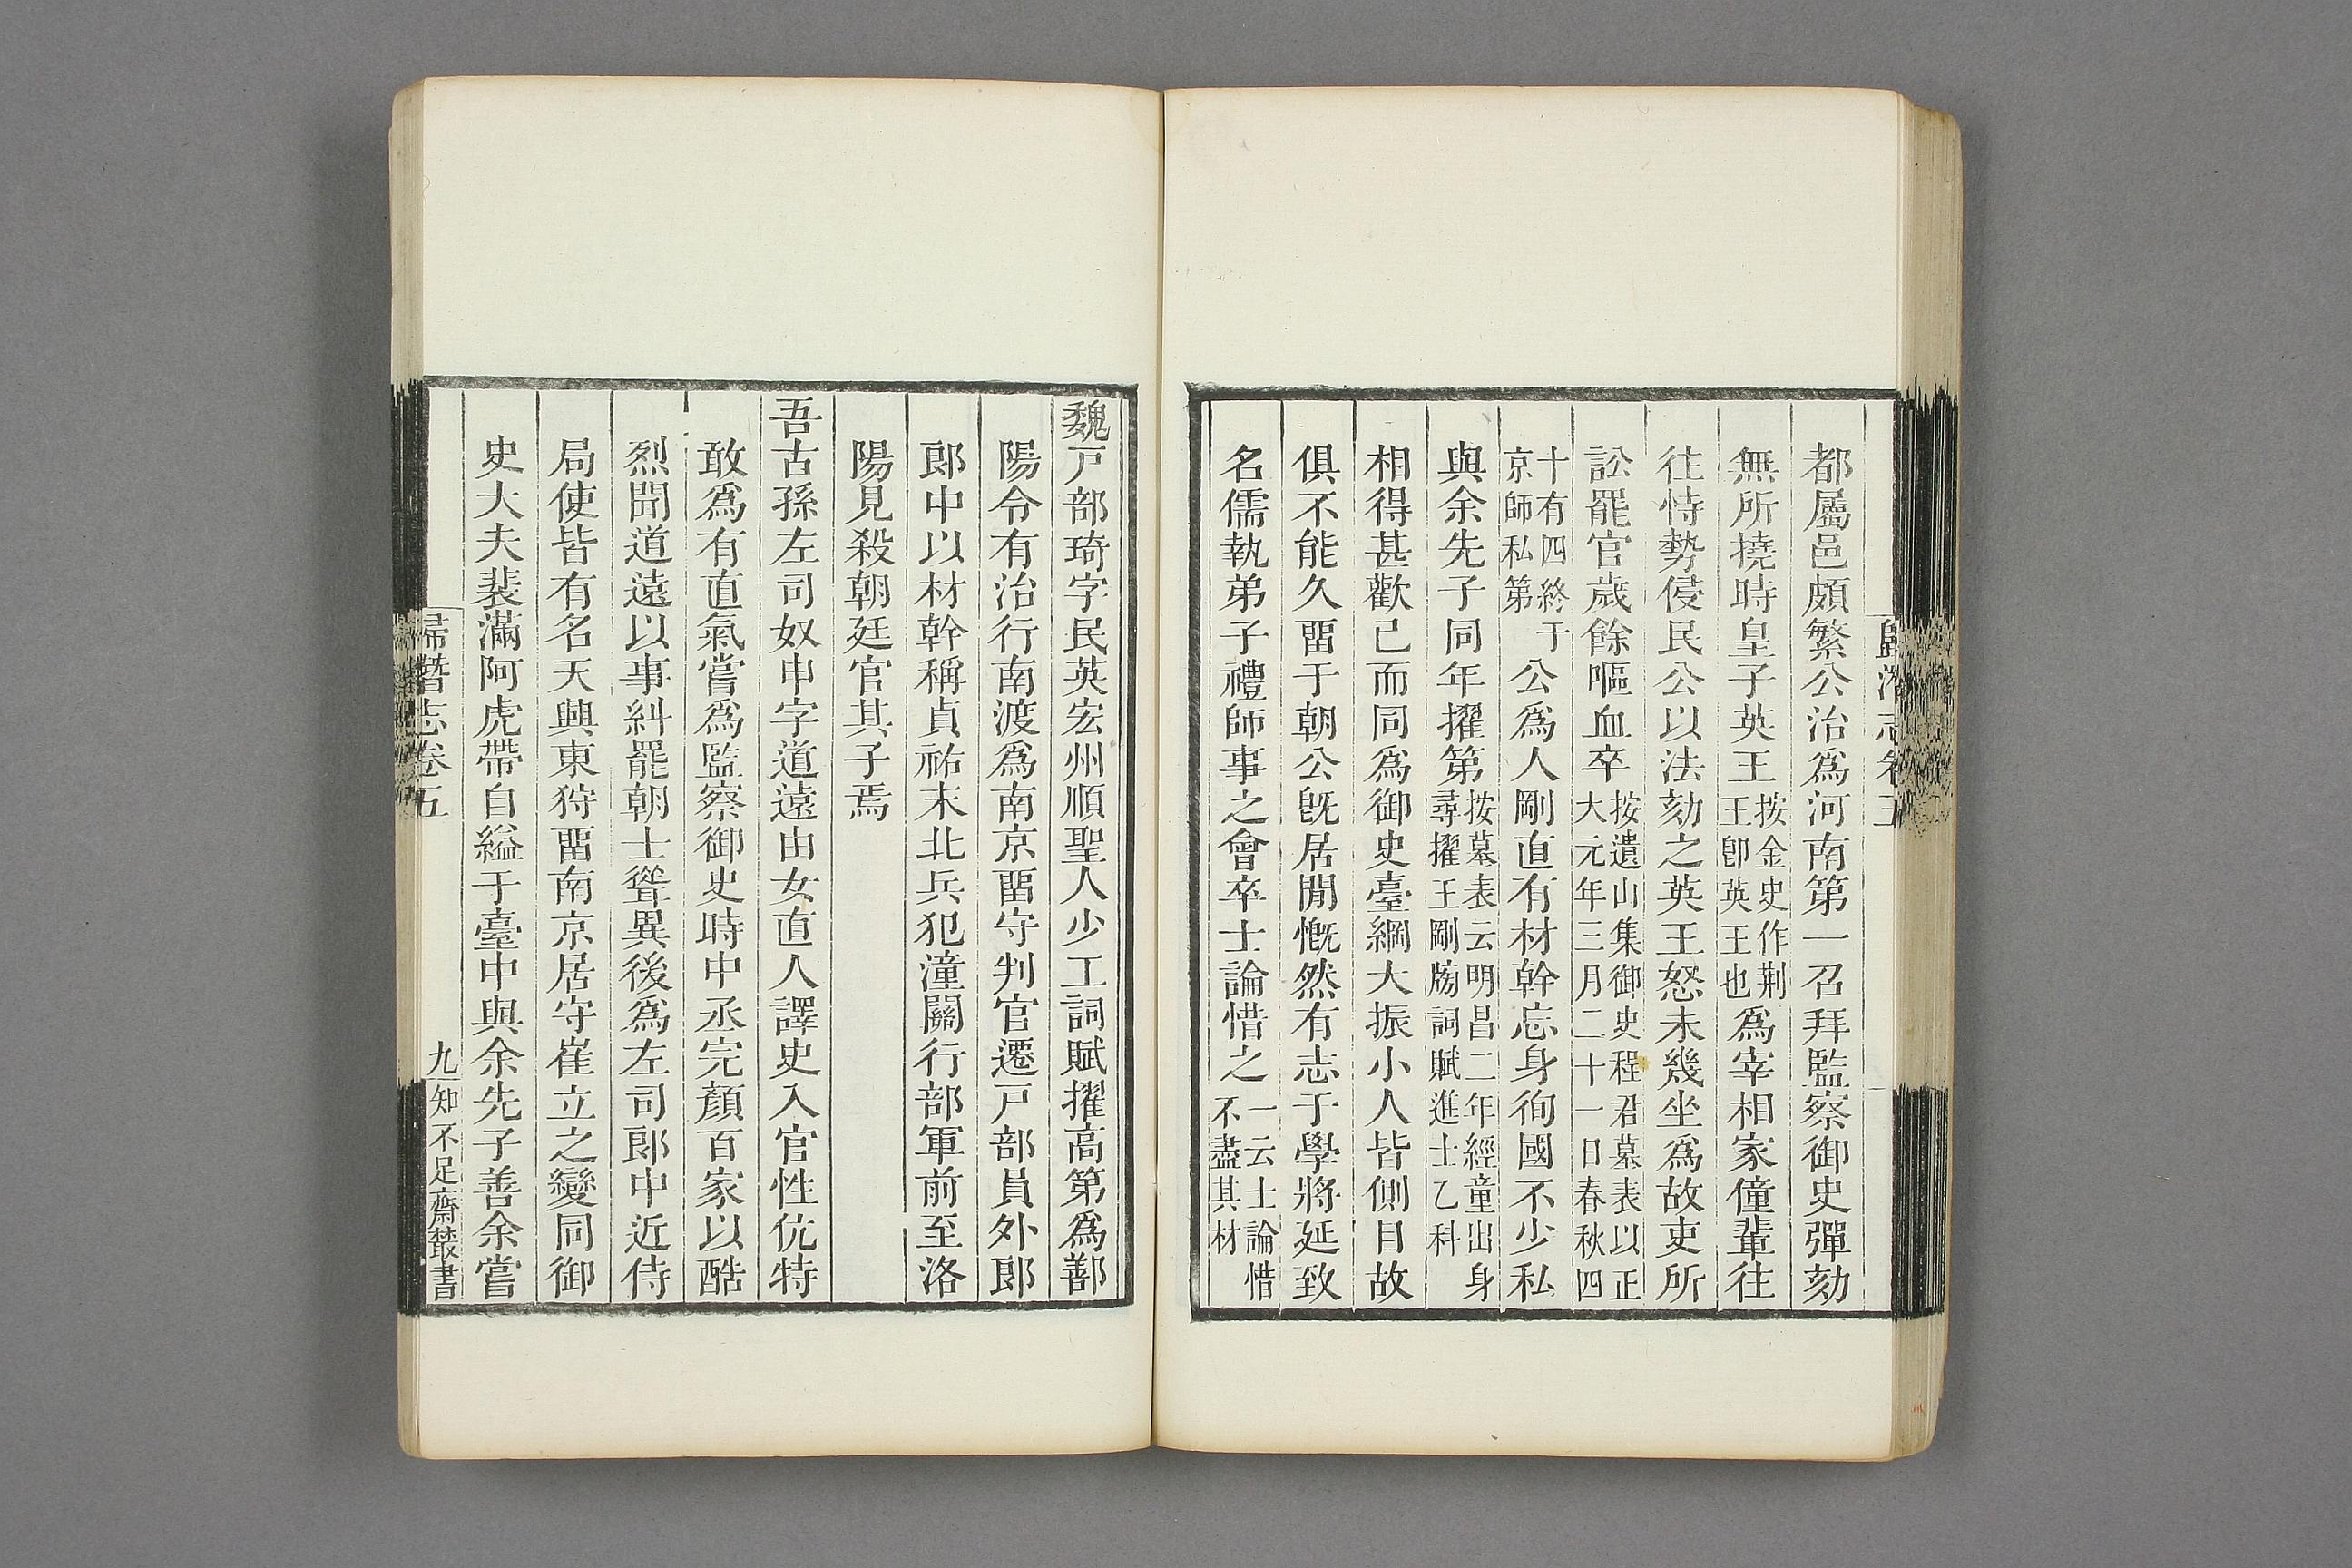 都屬邑頗繁公治爲河南第一召拜監察御史彈劾
無所撓時皇子英王按金史作荆王卽英王也爲宰相家僮輩往
往恃勢侵民公以法劾之英王怒未幾坐爲故吏所
訟罷官歲餘嘔血卒按遺山集御史程君墓表以正大元年三月二十一日春秋四
十有四終于京師私第公爲人剛直有材幹忘身徇國不少私
與余先子同年擢第按墓表云明昌二年經童出身尋擢王剛牓詞賦進士乙科
相得甚歡已而同爲御史臺綱大振小人皆側目故
俱不能久畱于朝公旣居閒慨然有志于學將延致
名儒執弟子禮師事之會卒士論惜之一云士論惜不盡其材
魏戸部琦字民英宏州順聖人少工詞賦擢高第爲鄢
陽令有治行南渡爲南京畱守判官遷戸部員外郞
郞中以材幹稱貞祐末北兵犯潼關行部軍前至洛
陽見殺朝廷官其子焉
吾古孫左司奴申字道遠由女直人譯史入官性伉特
敢爲有直氣嘗爲監察御史時中丞完顏百家以酷
烈聞道遠以事糾罷朝士聳異後爲左司郞中近侍
局使皆有名天興東狩畱南京居守崔立之變同御
史大夫裴滿阿虎帶自縊于臺中與余先子善余嘗
歸潛志卷五
九
知不足齋叢書